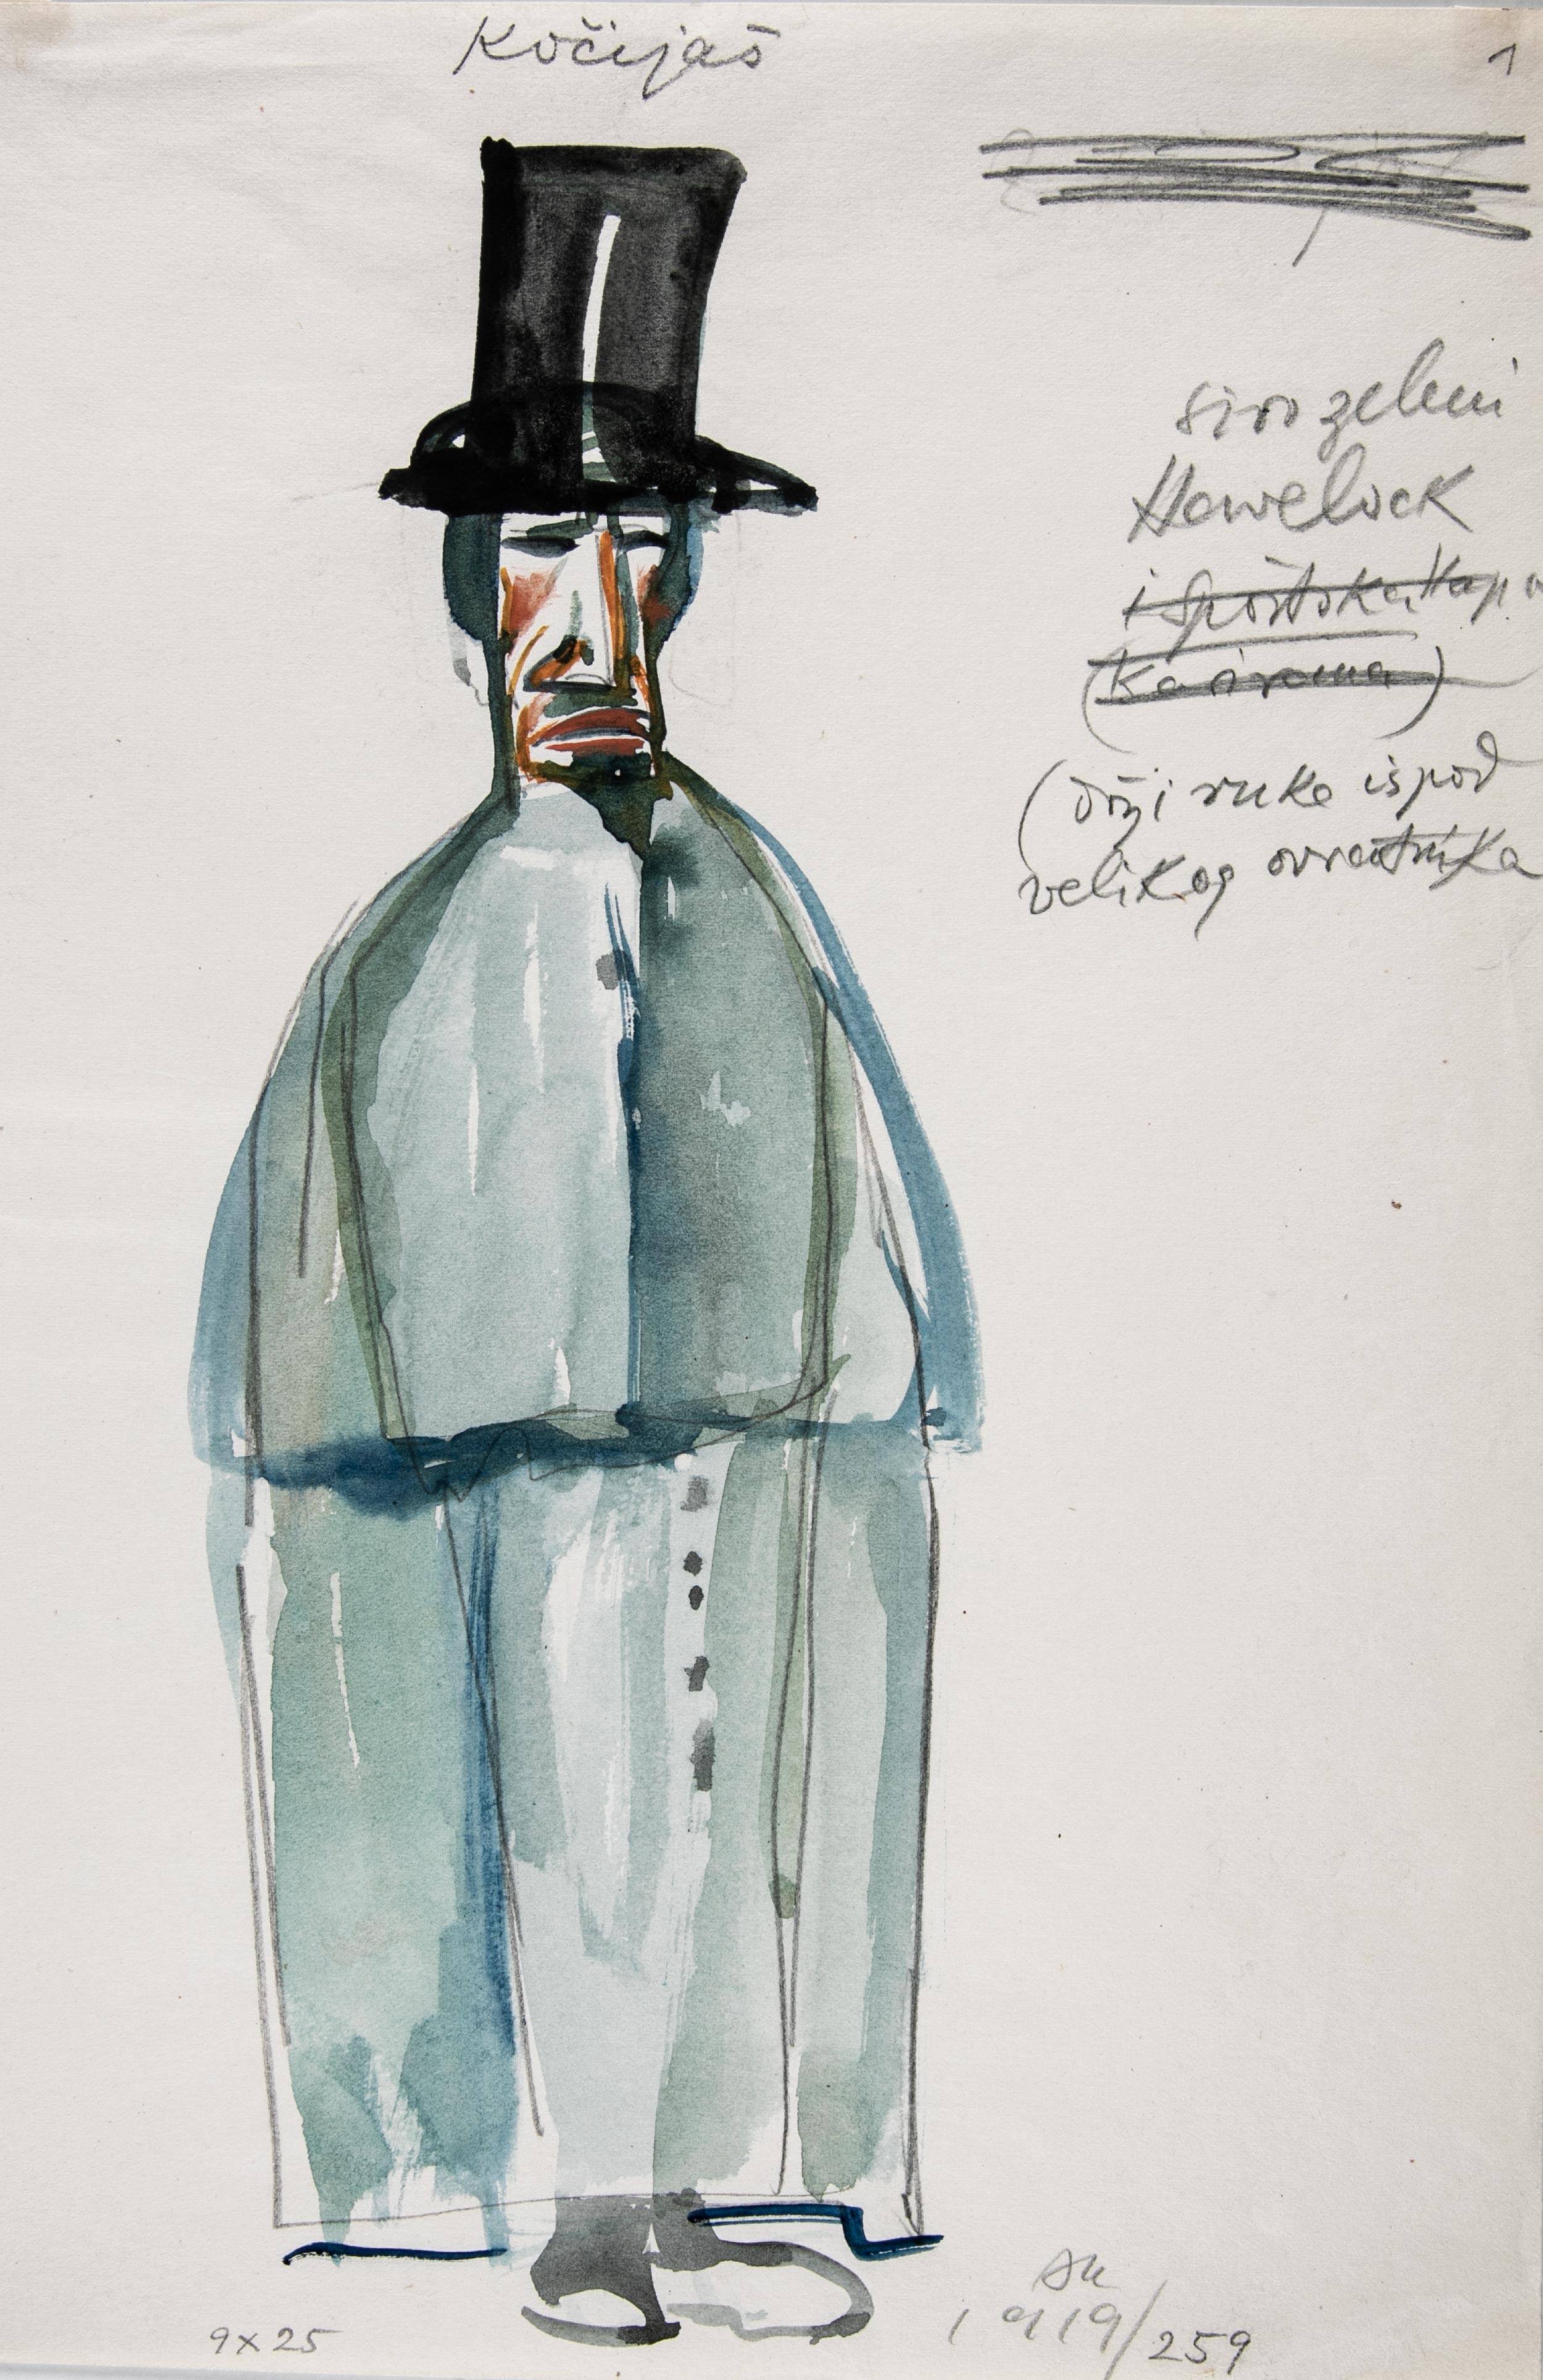 Kočijaš
1
sivo zeleni
Hawelock
(drži ruke ispod
velikog ovratnika
9x25
1919/259